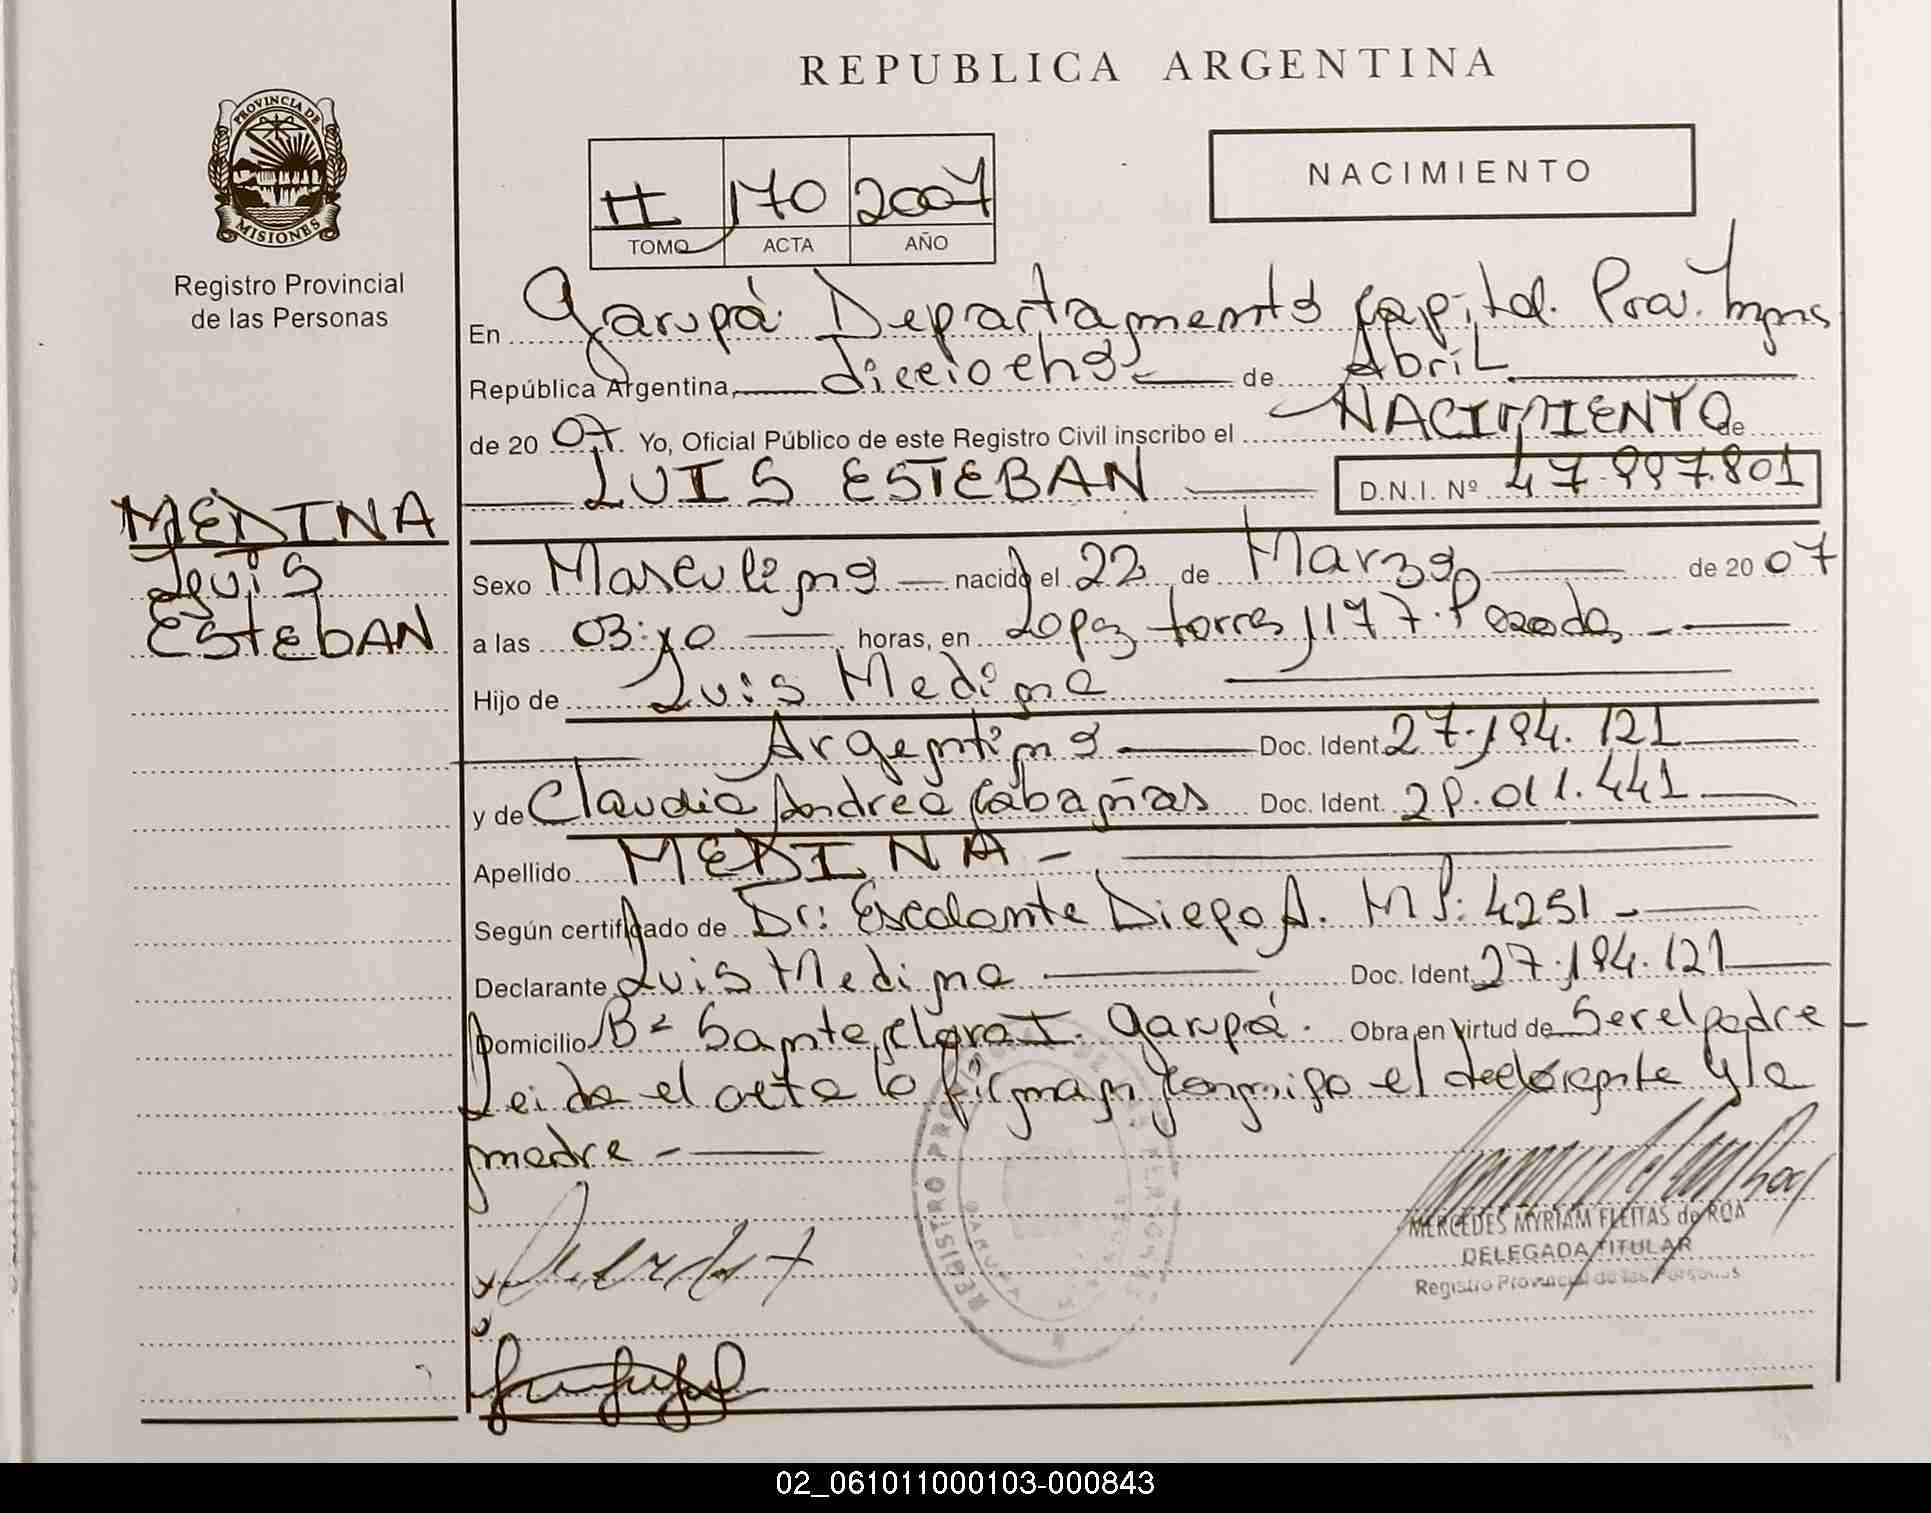 REPUBLICA ARGENTINA
PROVINCIA DE
MISIONES
Registro Provincial
de las Personas
NACIMIENTO
II 170 2007
TOMO ACTA AÑO
En Garupá Departamento Capital. Prov. Mnes
República Argentina, dieciocho de Abril
de 20 07. Yo, Oficial Público de este Registro Civil inscribo el NACIMIENTO de
LUIS ESTEBAN D.N.I. Nº 47.997.801
MEDINA
Luis
EStEbAN
Sexo Masculino nacido el 22 de Marzo de 20 07
a las 03:10 horas, en Lopez torres 1177. Posadas
Hijo de Luis Medina
Argentino Doc. Ident. 27.194.121
y de Claudia Andrea Cabañas Doc. Ident. 28.011.441
Apellido MEDINA
Según certificado de Dr: Escalante Diego A. MP: 4251
Declarante Luis Medina Doc. Ident. 27.194.121
Domicilio Bº Santa Clara I Garupá. Obra en virtud de Ser el padre
Leida el acta la firman conmigo el declarante y la
madre
MERCEDES MYRIAM FLEITAS de ROA
DELEGADA TITULAR
Registro Provincial de las Personas
02_061011000103-000843